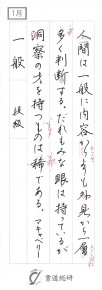 1月
人間は一般に内容からよりも外見から一層
多く判断する。だれもみな眼は持っているが
洞察の才を持つものは稀である。マキャベリー
一般 段級
書道総研